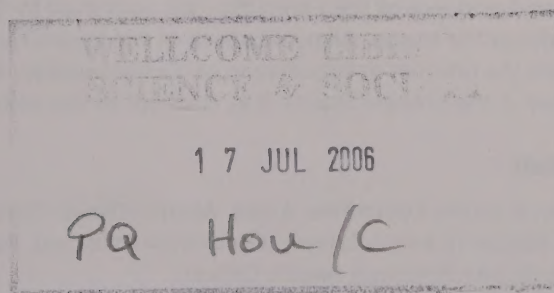 WELLCOME
SCIENCE &
17 JUL 2006
PQ Hou/C